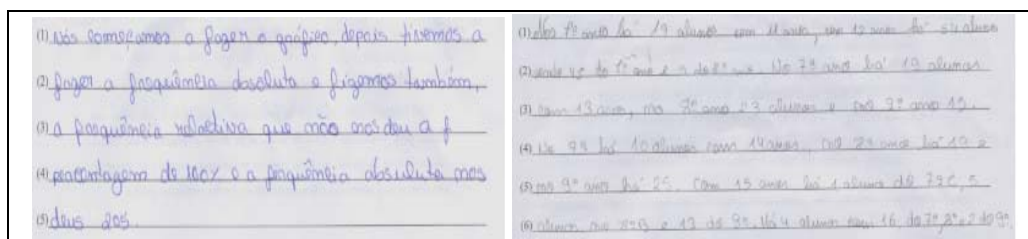 (1) Nós começamos a fazer o gráfico, depois tivemos a
(2) fazer a frequência absoluta e fizemos também,
(3) a frequência relactiva que não nos deu a f
(4) procentagem de 100% e a frequência absuluta nos
(5) deus 205.
(1) No 7º ano há 19 alunos com 11 anos, com 12 anos há 54 alunos
(2) onde 45 do 7º ano e 9 do 8º ano. No 7º ano há 19 alunos
(3) com 13 anos, no 8º ano 23 alunos e no 9º ano 19.
(4) No 7º há 10 alunos com 14 anos, no 8º ano há 19 e
(5) no 9º ano há 25. Com 15 anos há 1 aluno do 7º C, 5
(6) alunos no 8º B e 13 do 9º. Há 4 alunos com 16, do 7º, 8º e 2 do 9º.